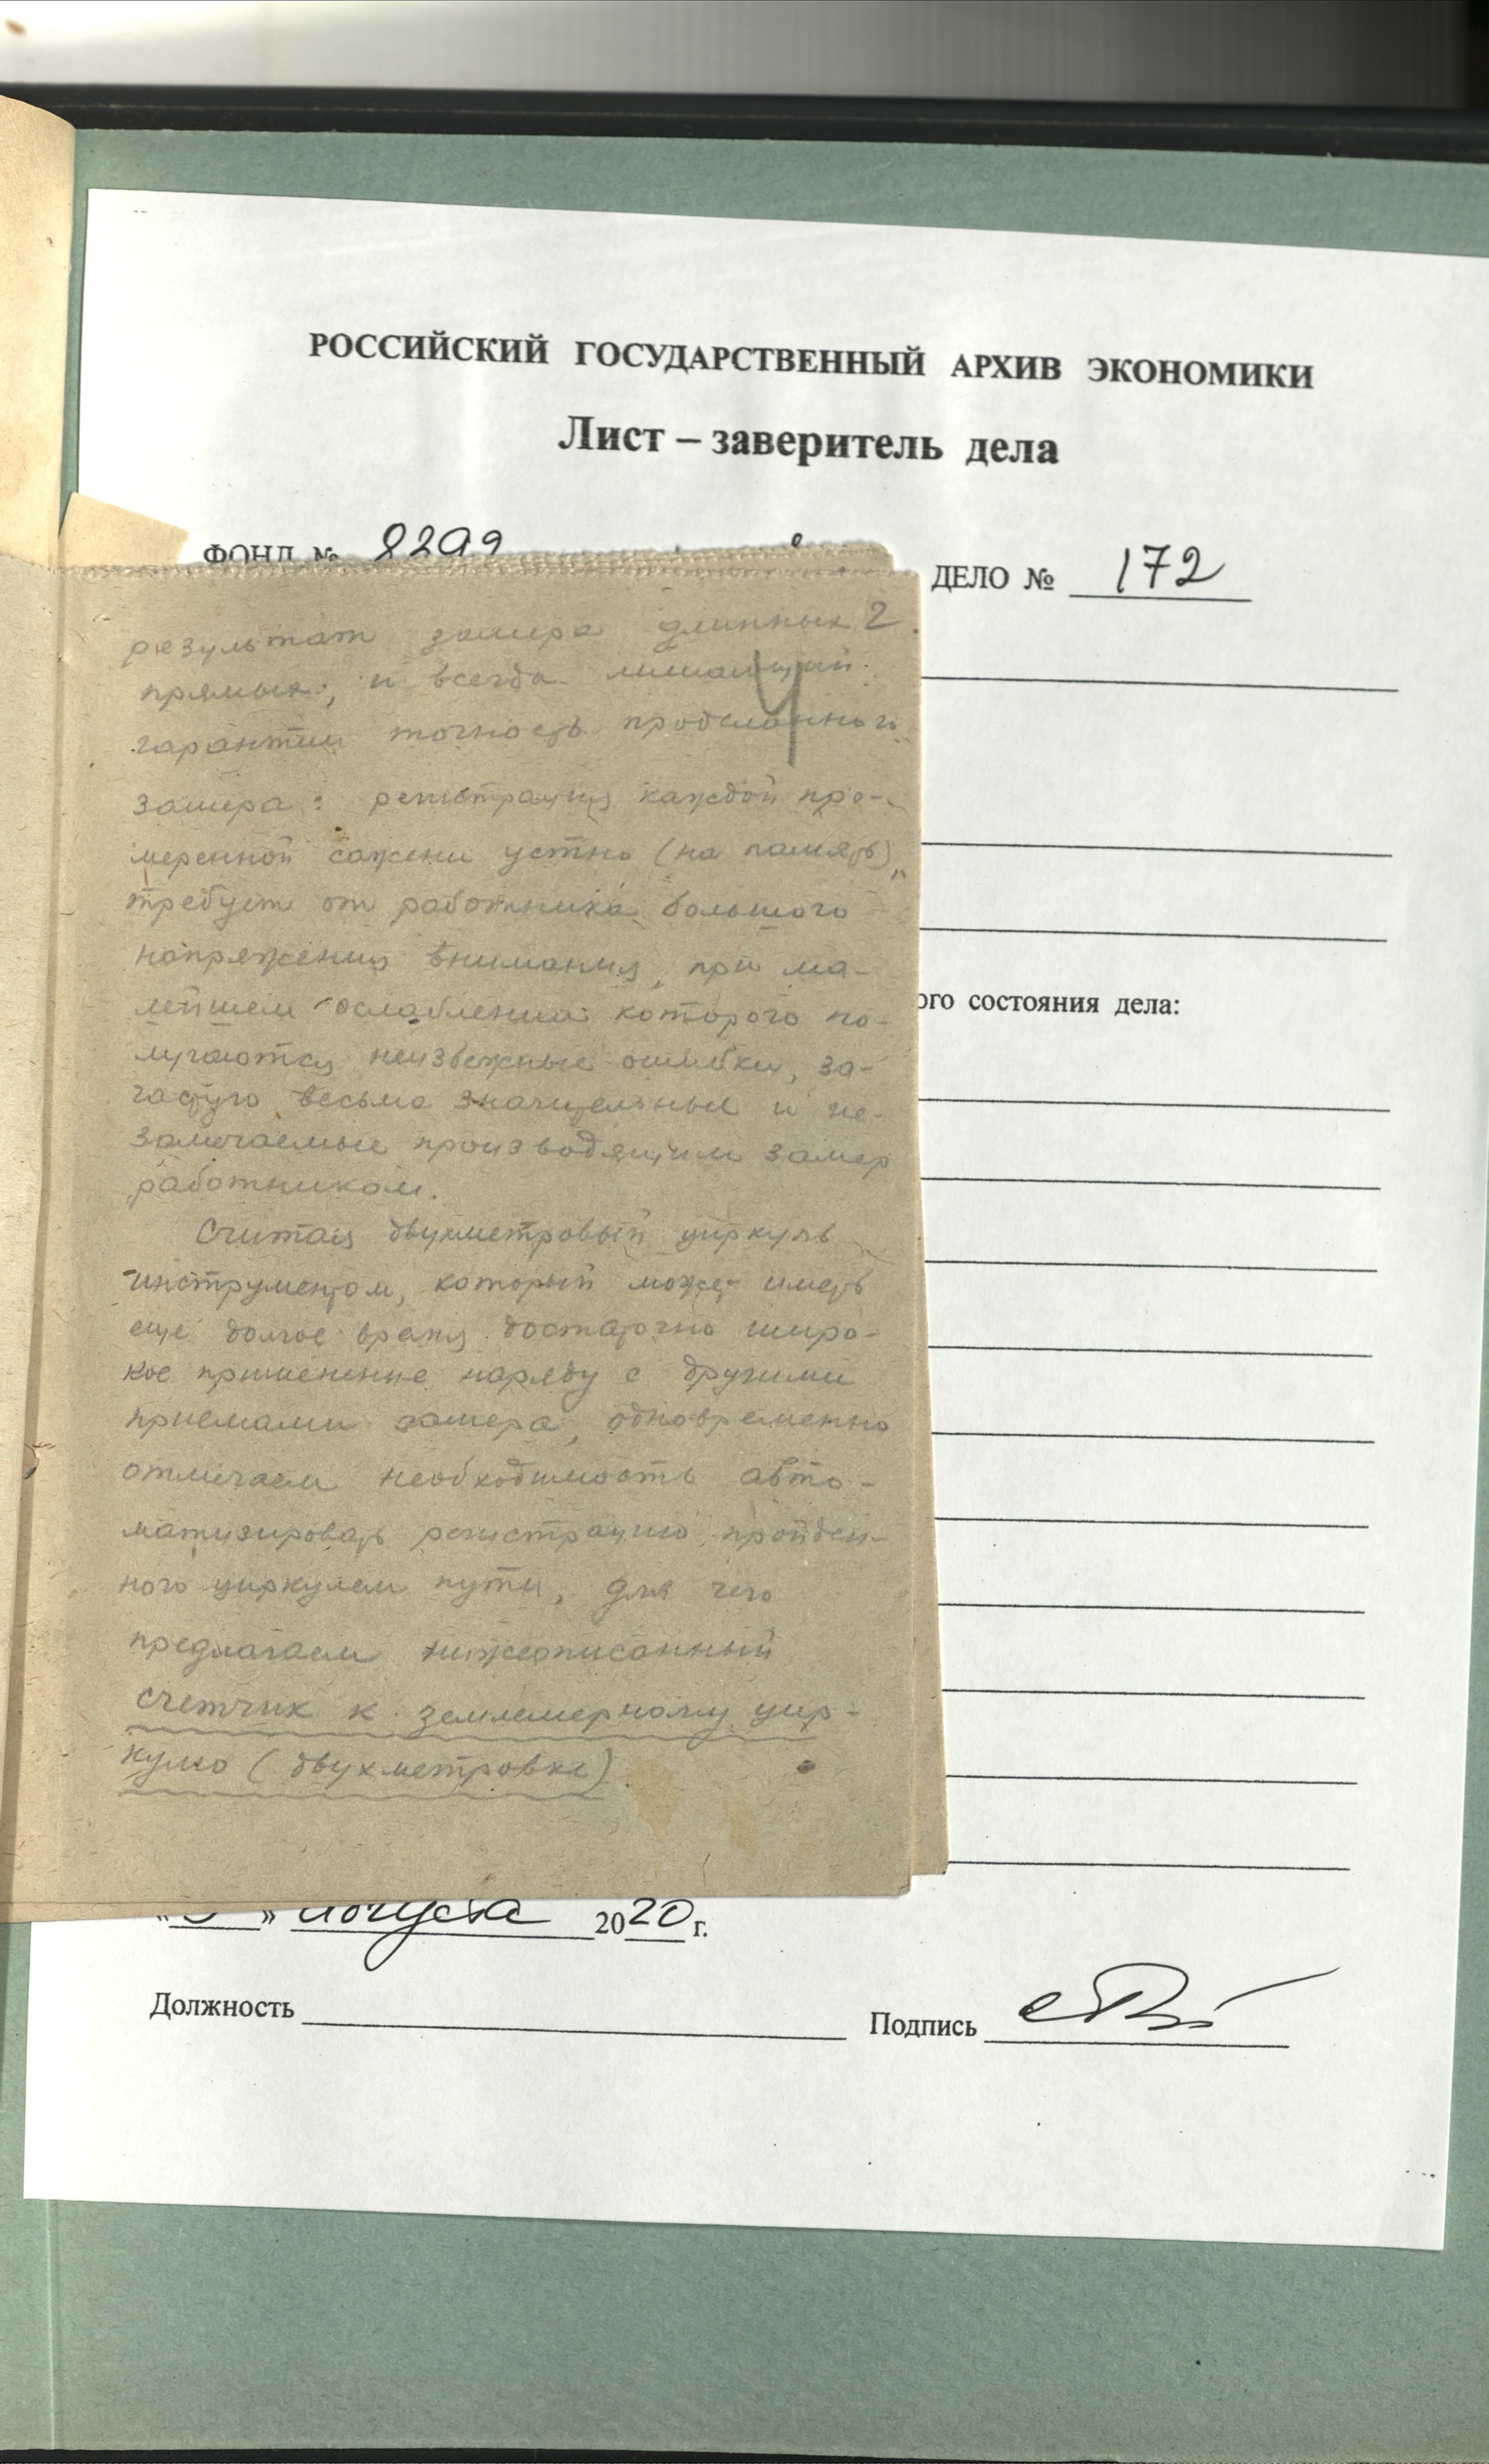 РОССИЙСКИЙ ГОСУДАРСТВЕННЫЙ АРХИВ ЭКОНОМИКИ
Лист – заверитель дела
ФОНД № 8299
ДЕЛО № 172
2
4
результат замера длинных
прямых, и всегда лишающий
гарантии точность проделанного
замера: регистрация каждой про-
меренной сажени устно (на память),
требует от работника большого
напряжения внимания, при ма-
лейшем ослаблении которого по-
лучаются неизбежные ошибки, за-
частую весьма значительные и не-
замечаемые производящим замер
работником.
Считая двухметровый циркуль
инструментом, который может иметь
еще долгое время достаточно широ-
кое применение наряду с другими
приемами замера, одновременно
отмечаем необходимость авто-
матизировать регистрацию пройден-
ного циркулем пути, для чего
предлагаем нижеописанный
счетчик к землемерному цир-
кулю (двухметровке)
ого состояния дела:
» августа 2020 г.
Должность
Подпись